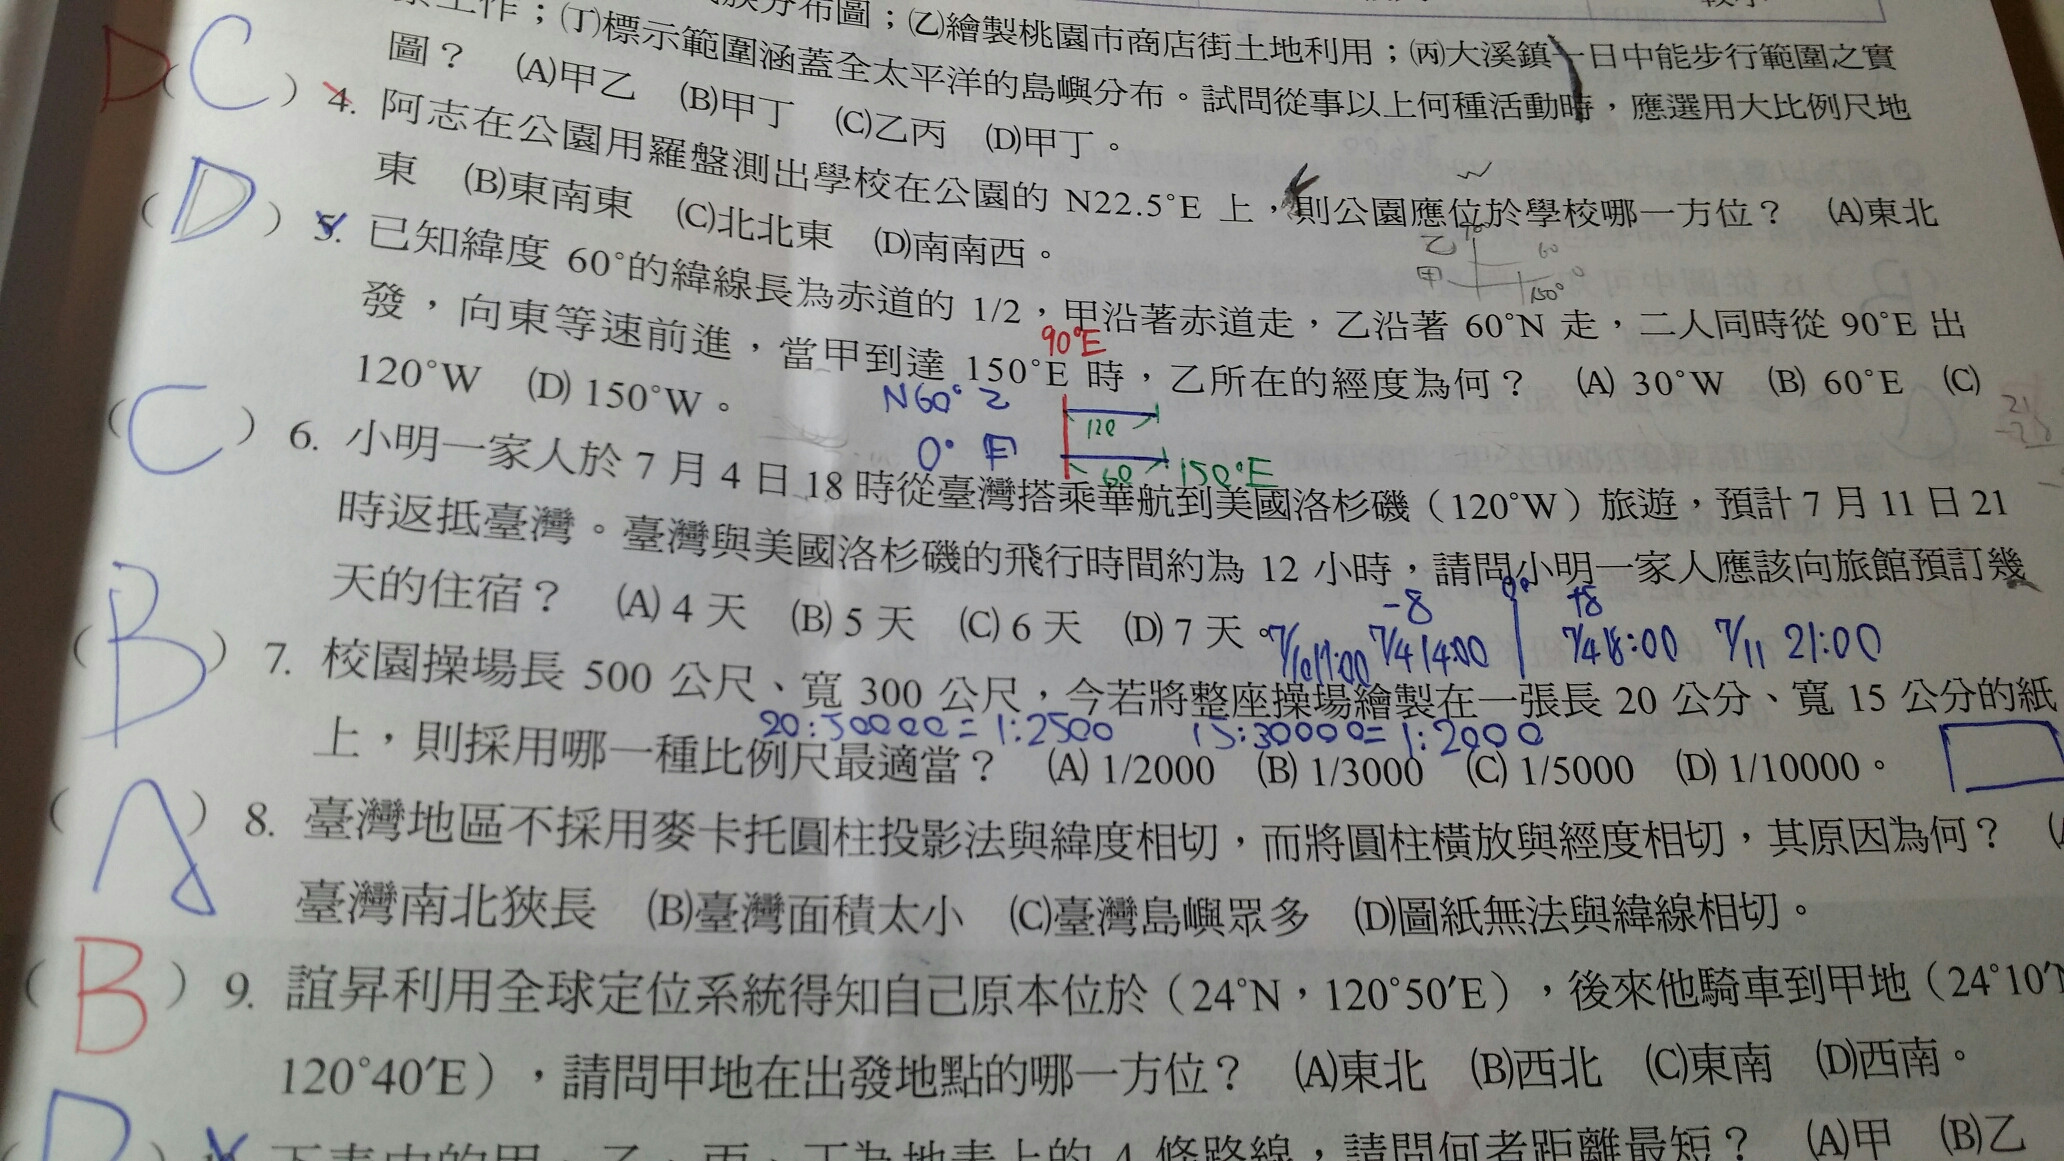 分布圖；(乙)繪製桃園市商店街土地利用；(丙)大溪鎮一日中能步行範圍之實
工作；(丁)標示範圍涵蓋全太平洋的島嶼分布。試問從事以上何種活動時，應選用大比例尺地
圖？ (A)甲乙 (B)甲丁 (C)乙丙 (D)甲丁。
D ( C ) 4. 阿志在公園用羅盤測出學校在公園的 N22.5°E 上，則公園應位於學校哪一方位？ (A)東北
東 (B)東南東 (C)北北東 (D)南南西。
乙 60
甲 150° 0
( D ) 5. 已知緯度 60°的緯線長為赤道的 1/2，甲沿著赤道走，乙沿著 60°N 走，二人同時從 90°E 出
發，向東等速前進，當甲到達 150°E 時，乙所在的經度為何？ (A) 30°W (B) 60°E (C)
90°E
120°W (D) 150°W。
N60° 乙 120
0° 甲 60 150°E
( C ) 6. 小明一家人於 7 月 4 日 18 時從臺灣搭乘華航到美國洛杉磯（120°W）旅遊，預計 7 月 11 日 21
時返抵臺灣。臺灣與美國洛杉磯的飛行時間約為 12 小時，請問小明一家人應該向旅館預訂幾
天的住宿？ (A) 4 天 (B) 5 天 (C) 6 天 (D) 7 天。
-8 0° +8
7/4 14:00 7/4 18:00 7/11 21:00
( B ) 7. 校園操場長 500 公尺、寬 300 公尺，今若將整座操場繪製在一張長 20 公分、寬 15 公分的紙
20:50000=1:2500 15:30000=1:2000
上，則採用哪一種比例尺最適當？ (A) 1/2000 (B) 1/3000 (C) 1/5000 (D) 1/10000。
( A ) 8. 臺灣地區不採用麥卡托圓柱投影法與緯度相切，而將圓柱橫放與經度相切，其原因為何？
臺灣南北狹長 (B)臺灣面積太小 (C)臺灣島嶼眾多 (D)圖紙無法與緯線相切。
( B ) 9. 誼昇利用全球定位系統得知自己原本位於（24°N，120°50′E），後來他騎車到甲地（24°10′N
120°40′E），請問甲地在出發地點的哪一方位？ (A)東北 (B)西北 (C)東南 (D)西南。
下表中的甲、乙、丙、丁為地表上的 4 條路線，請問何者距離最短？ (A)甲 (B)乙